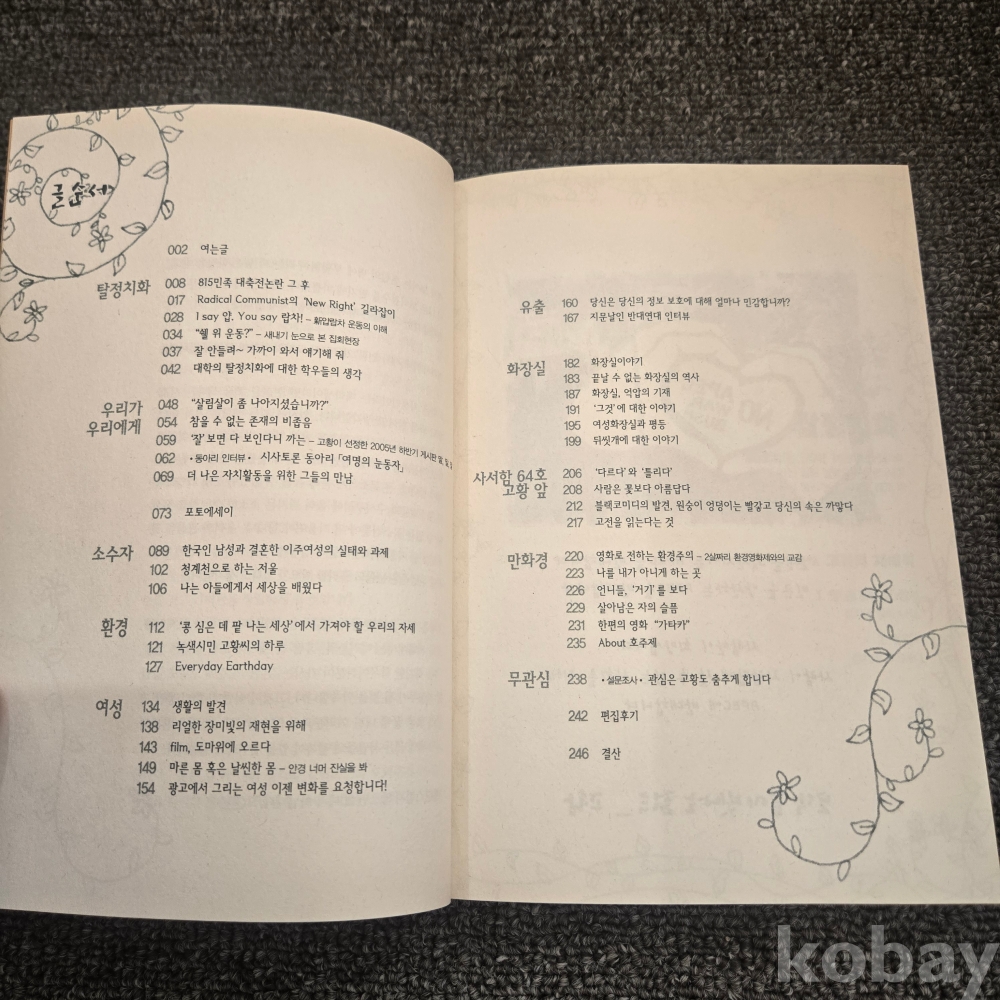 글 순서
002 여는글
탈정치화
008 815민족 대축전논란 그 후
017 Radical Communist의 'New Right' 길라잡이
028 I say 얍, You say 랍차! – 新얍랍차 운동의 이해
034 "쉘 위 운동?" – 새내기 눈으로 본 집회현장
037 잘 안들려~ 가까이 와서 얘기해 줘
042 대학의 탈정치화에 대한 학우들의 생각
우리가
우리에게
048 "살림살이 좀 나아지셨습니까?"
054 참을 수 없는 존재의 비좁음
059 '잘'보면 다 보인다니 까는 – 고황이 선정한 2005년 하반기 게시판
062 •동아리 인터뷰• 시사토론 동아리「여명의 눈동자」
069 더 나은 자치활동을 위한 그들의 만남
073 포토에세이
소수자
089 한국인 남성과 결혼한 이주여성의 실태와 과제
102 청계천으로 하는 저울
106 나는 아들에게서 세상을 배웠다
환경
112 '콩 심은 데 팥 나는 세상'에서 가져야 할 우리의 자세
121 녹색시민 고황씨의 하루
127 Everyday Earthday
여성
134 생활의 발견
138 리얼한 장미빛의 재현을 위해
143 film, 도마위에 오르다
149 마른 몸 혹은 날씬한 몸 – 안경 너머 진실을 봐
154 광고에서 그리는 여성 이젠 변화를 요청합니다!
유출
160 당신은 당신의 정보 보호에 대해 얼마나 민감합니까?
167 지문날인 반대연대 인터뷰
화장실
182 화장실이야기
183 끝날 수 없는 화장실의 역사
187 화장실, 억압의 기재
191 '그것'에 대한 이야기
195 여성화장실과 평등
199 뒤씻개에 대한 이야기
사서함 64호
고황 앞
206 '다르다'와 '틀리다'
208 사람은 꽃보다 아름답다
212 블랙코미디의 발견, 원숭이 엉덩이는 빨갛고 당신의 속은 까맣다
217 고전을 읽는다는 것
만화경
220 영화로 전하는 환경주의 – 2살짜리 환경영화제와의 교감
223 나를 내가 아니게 하는 곳
226 언니들, '거기'를 보다
229 살아남은 자의 슬픔
231 한편의 영화 "가타카"
235 About 호주제
무관심
238 •설문조사• 관심은 고황도 춤추게 합니다
242 편집후기
246 결산
kobay